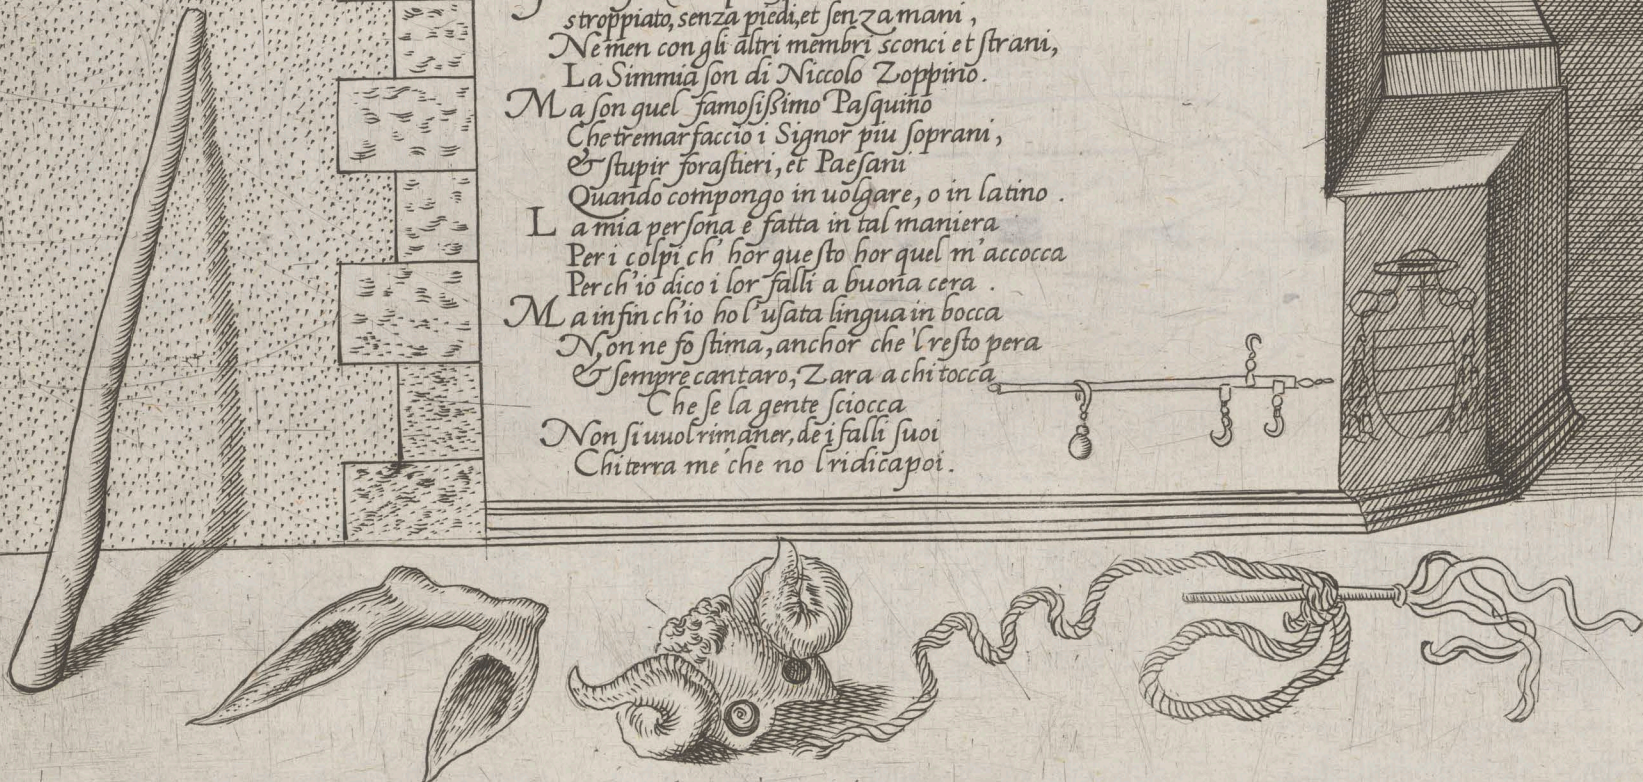 stroppiato, senza piedi, et senza mani,
Ne men con gli altri membri sconci et strani,
La Simmia son di Niccolo Zoppino.
Ma son quel famosissimo Pasquino
Che tremar faccio i Signor piu soprani,
& stupir forastieri, et Paesani
Quando compongo in uolgare, o in latino.
La mia persona e fatta in tal maniera
Per i colpi ch' hor questo hor quel m'accocca
Perch'io dico i lor falli a buona cera.
Ma infin ch'io ho l'usata lingua in bocca
Non ne fo stima, anchor che'l resto pera
& sempre cantaro, Zara a chi tocca
Che se la gente sciocca
Non si uuol rimaner, de i falli suoi
Chi terra me che no'l ridica poi.